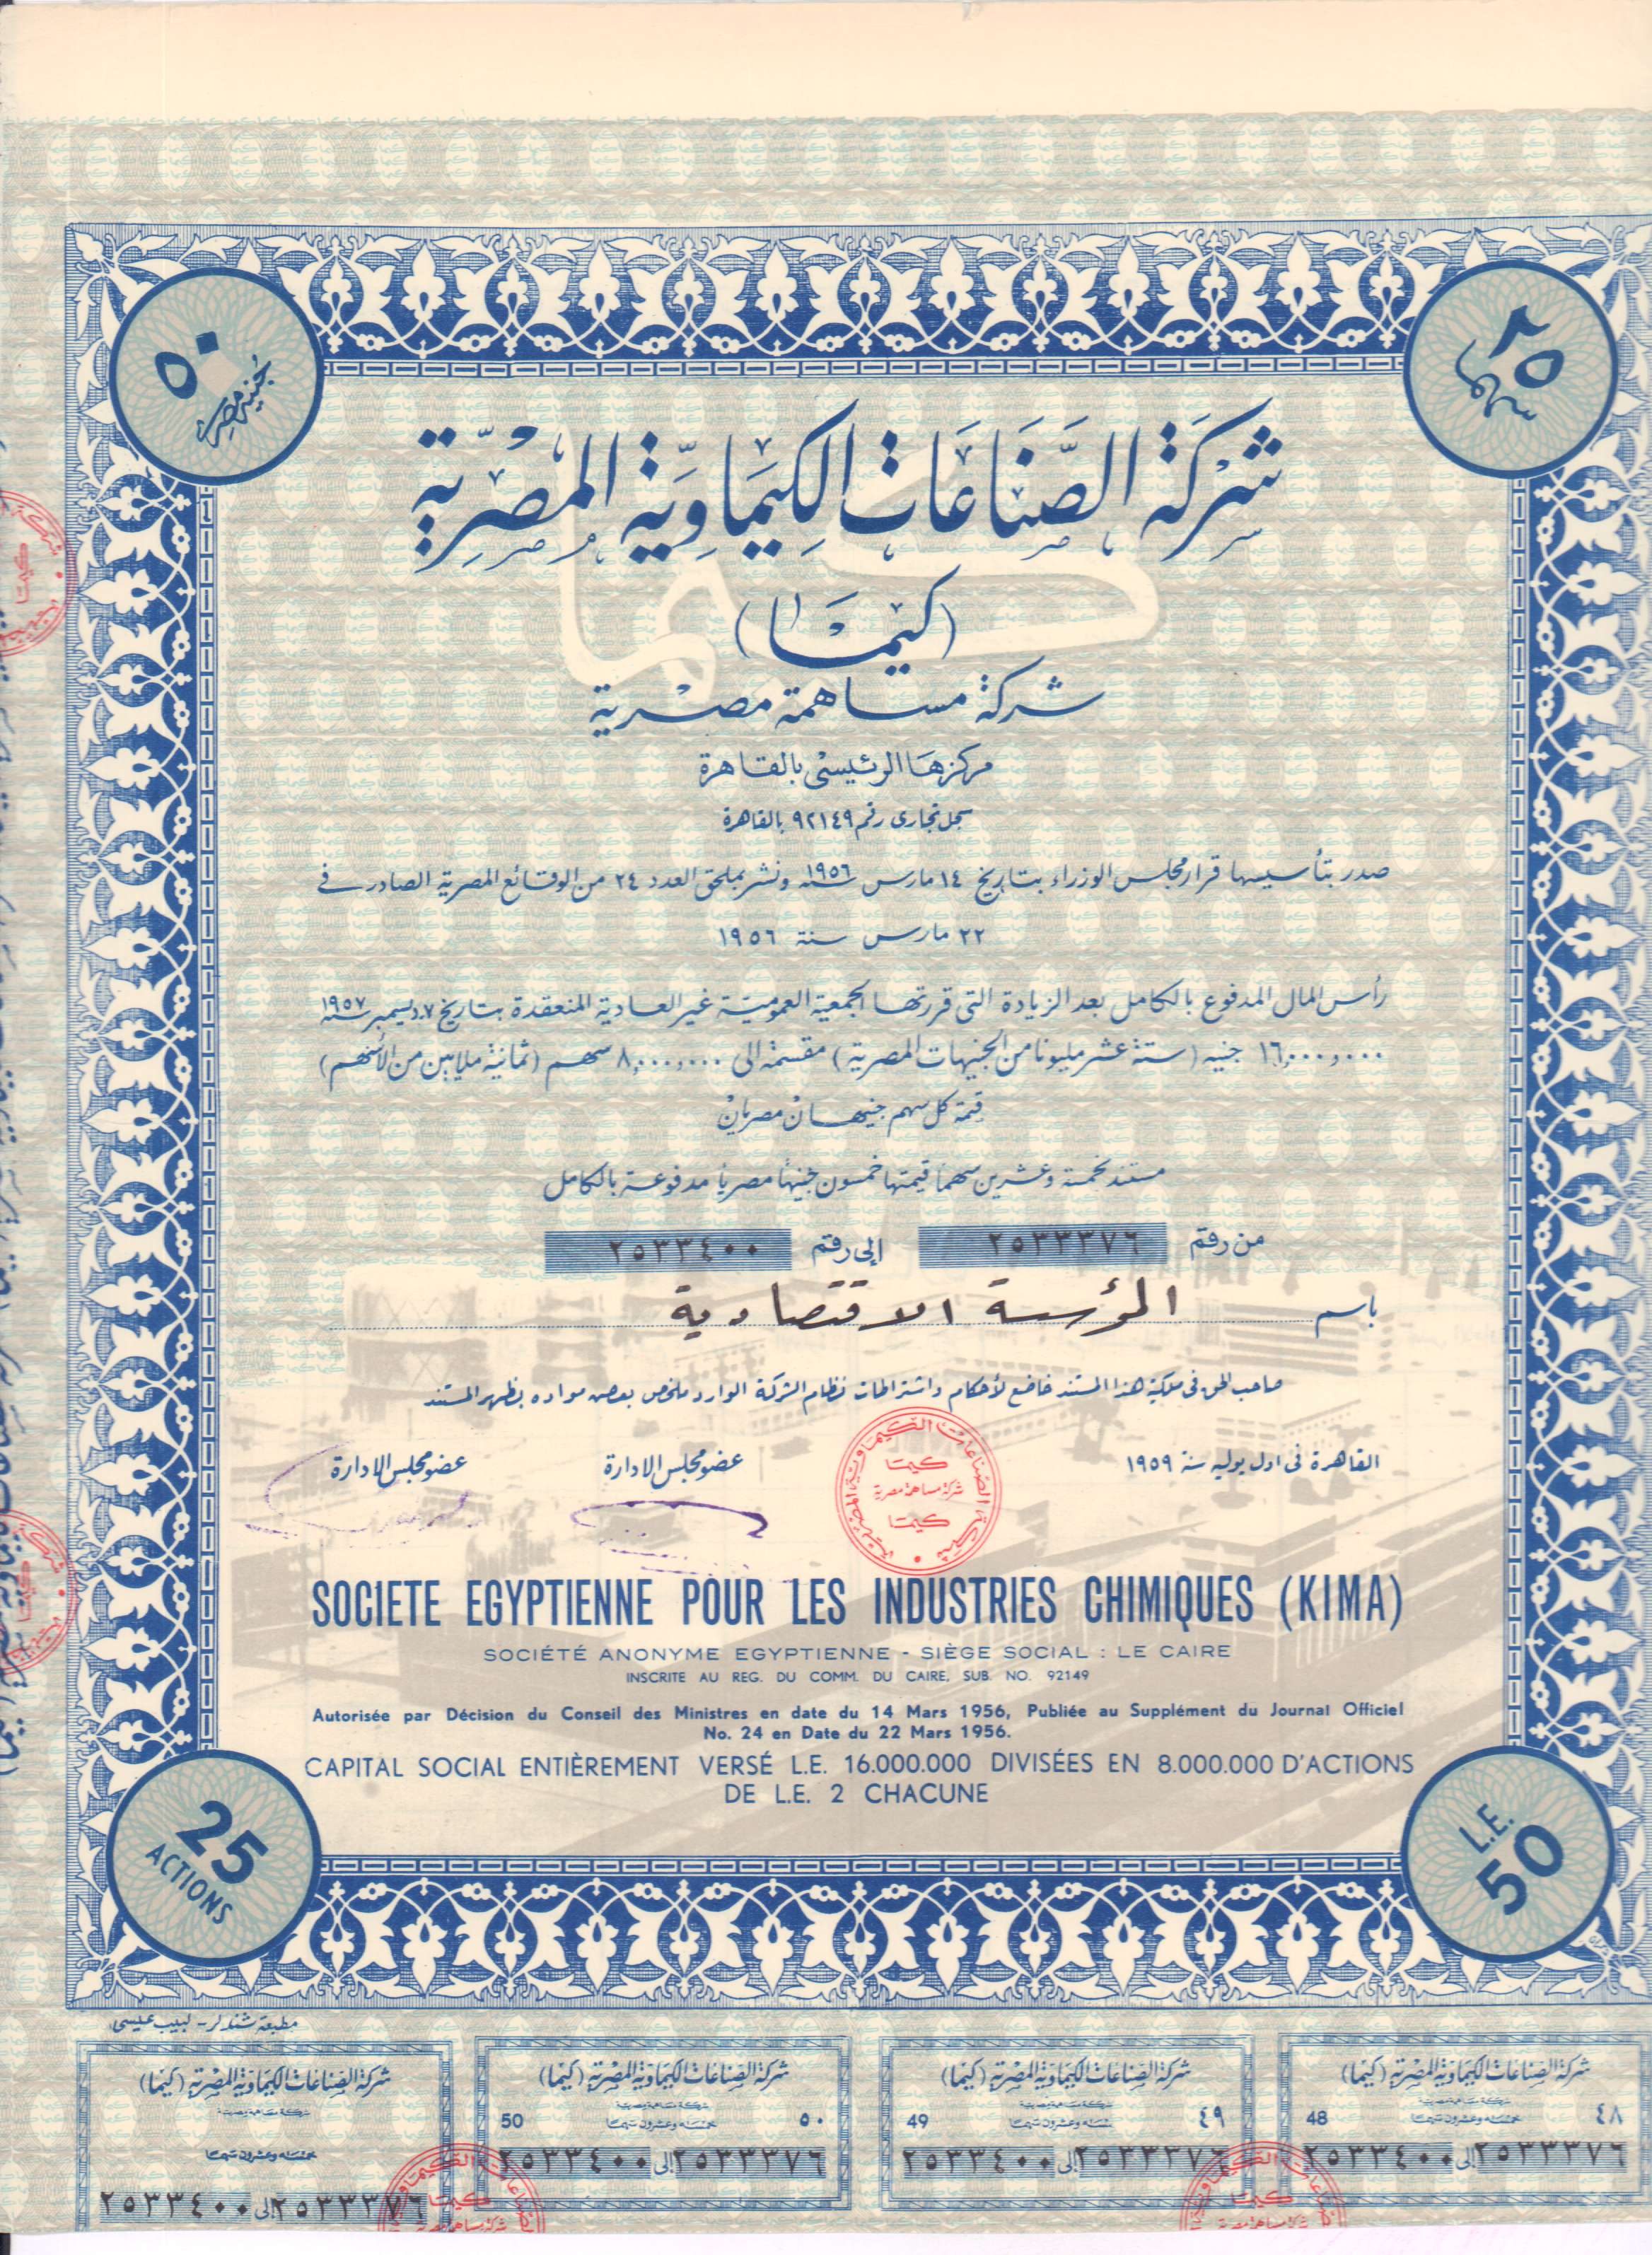 ٥٠
جنيه مصرى
٢٥
سهما
شركة الصناعات الكيماوية المصرية
(كيما)
شركة مساهمة مصرية
مركزها الرئيسى بالقاهرة
سجل تجارى رقم ٩٢١٤٩ بالقاهرة
صدر بتأسيسها قرار مجلس الوزراء بتاريخ ١٤ مارس سنة ١٩٥٦ ونشر بملحق العدد ٢٤ من الوقائع المصرية الصادر فى
٢٢ مارس سنة ١٩٥٦
رأس المال المدفوع بالكامل بعد الزيادة التى قررتها الجمعية العمومية غير العادية المنعقدة بتاريخ ٧ ديسمبر سنة ١٩٥٧
١٦,٠٠٠,٠٠٠ جنيه (ستة عشر مليونا من الجنيهات المصرية) مقسمة الى ٨,٠٠٠,٠٠٠ سهم (ثمانية ملايين من الأسهم)
قيمة كل سهم جنيهان مصريان
مستند لخمسة وعشرين سهما قيمتها خمسون جنيها مصريا مدفوعة بالكامل
من رقم ٢٥٣٣٣٧٦ إلى رقم ٢٥٣٣٤٠٠
باسم المؤسسة الاقتصادية
صاحب الحق فى ملكية هذا المستند خاضع لأحكام واشتراطات نظام الشركة الوارد ملخص بعض مواده بظهر المستند
القاهرة فى اول يوليه سنة ١٩٥٩ عضو مجلس الادارة عضو مجلس الادارة
شركة الصناعات الكيماوية المصرية
كيما
شركة مساهمة مصرية
كيما
SOCIETE EGYPTIENNE POUR LES INDUSTRIES CHIMIQUES (KIMA)
SOCIÉTÉ ANONYME EGYPTIENNE - SIÈGE SOCIAL : LE CAIRE
INSCRITE AU REG. DU COMM. DU CAIRE, SUB. NO. 92149
Autorisée par Décision du Conseil des Ministres en date du 14 Mars 1956, Publiée au Supplément du Journal Officiel
No. 24 en Date du 22 Mars 1956.
CAPITAL SOCIAL ENTIÈREMENT VERSÉ L.E. 16.000.000 DIVISÉES EN 8.000.000 D'ACTIONS
DE L.E. 2 CHACUNE
25
ACTIONS
L.E.
50
مطبعة شندلر - لبيب عيسى
شركة الصناعات الكيماوية المصرية (كيما)
شركة مساهمة مصرية
٤٨ خمسة وعشرون سهما 48
٢٥٣٣٣٧٦ إلى ٢٥٣٣٤٠٠
شركة الصناعات الكيماوية المصرية (كيما)
شركة مساهمة مصرية
٤٩ خمسة وعشرون سهما 49
٢٥٣٣٣٧٦ إلى ٢٥٣٣٤٠٠
شركة الصناعات الكيماوية المصرية (كيما)
شركة مساهمة مصرية
٥٠ خمسة وعشرون سهما 50
٢٥٣٣٣٧٦ إلى ٢٥٣٣٤٠٠
شركة الصناعات الكيماوية المصرية (كيما)
شركة مساهمة مصرية
خمسة وعشرون سهما
٢٥٣٣٣٧٦ إلى ٢٥٣٣٤٠٠